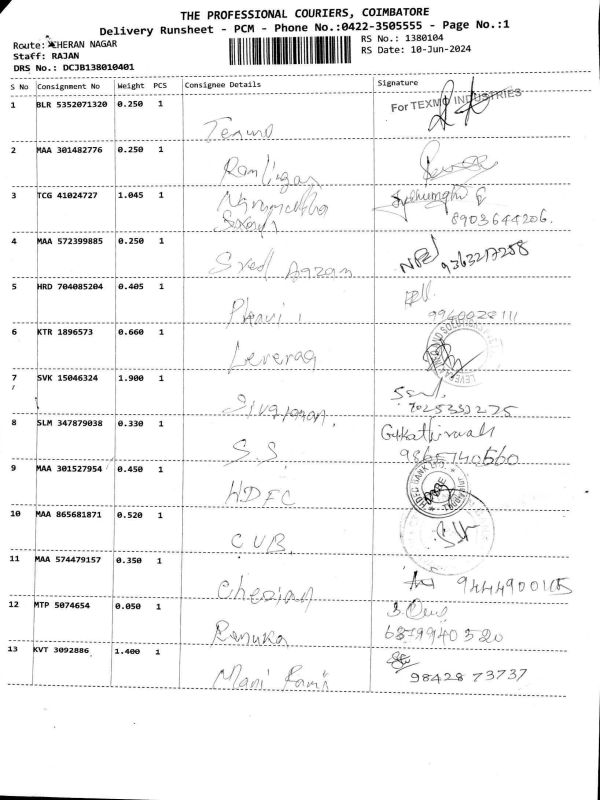 THE PROFESSIONAL COURIERS, COIMBATORE
Delivery Runsheet - PCM - Phone No.:0422-3505555 - Page No.:1
Route: CHERAN NAGAR
RS No.: 1380104
Staff: RAJAN
RS Date: 10-Jun-2024
DRS No.: DCJB138010401
S No Consignment No Weight PCS Consignee Details Signature
1 BLR 5352071320 0.250 1 Texmo For TEXMO INDUSTRIES
2 MAA 301482776 0.250 1 Ramlingam
3 TCG 41024727 1.045 1
8903644206.
4 MAA 572399885 0.250 1 Syed Agzam 9363217258
5 HRD 704085204 0.405 1
6 KTR 1896573 0.660 1 Leverag
7 SVK 15046324 1.900 1 7025353275
8 SLM 347879038 0.330 1 S.S. G.Kathirvall
9865740560
9 MAA 301527954 0.450 1 HDFC HDFC BANK LTD.
10 MAA 865681871 0.520 1 CUB
11 MAA 574479157 0.350 1 Cherian
12 MTP 5074654 0.050 1 Renuka
6379940320
13 KVT 3092886 1.400 1 Mani Ram
98428 73737